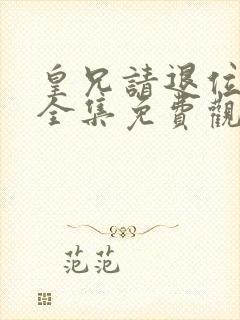 皇兄請退位
全集免費觀
范范